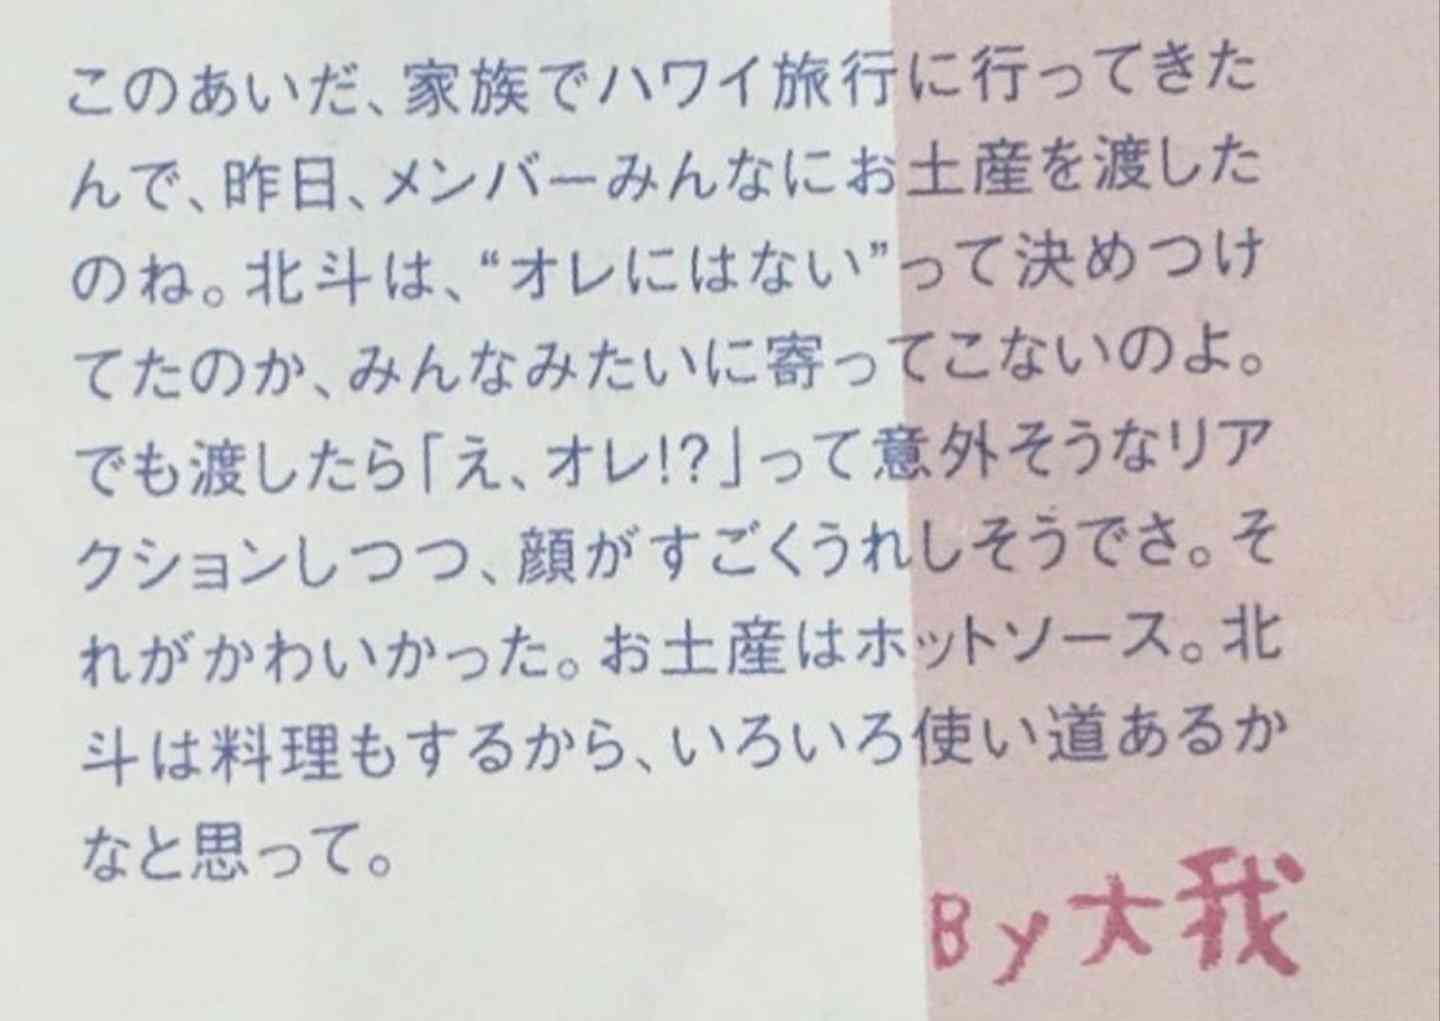 このあいだ、家族でハワイ旅行に行ってきた
んで、昨日、メンバーみんなにお土産を渡した
のね。北斗は、“オレにはない”って決めつけ
てたのか、みんなみたいに寄ってこないのよ。
でも渡したら「え、オレ!?」って意外そうなリア
クションしつつ、顔がすごくうれしそうでさ。そ
れがかわいかった。お土産はホットソース。北
斗は料理もするから、いろいろ使い道あるか
なと思って。
By大我